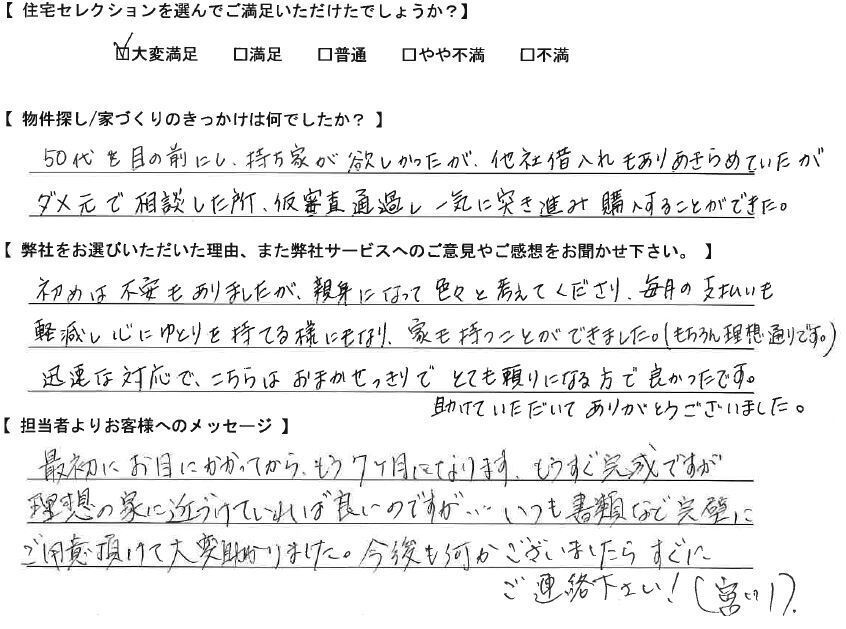 【 住宅セレクションを選んでご満足いただけたでしょうか？】
☑大変満足 □満足 □普通 □やや不満 □不満
【 物件探し/家づくりのきっかけは何でしたか？ 】
50代を目の前にし、持ち家が欲しかったが、他社借入れもありあきらめていたが
ダメ元で相談した所、仮審査通過し一気に突き進み購入することができた。
【 弊社をお選びいただいた理由、また弊社サービスへのご意見やご感想をお聞かせ下さい。 】
初めは不安もありましたが、親身になって色々と考えてくださり、毎月の支払いも
軽減し心にゆとりを持てる様にもなり、家も持つことができました。(もちろん理想通りです。)
迅速な対応で、こちらはおまかせっきりでとても頼りになる方で良かったです。
助けていただいてありがとうございました。
【 担当者よりお客様へのメッセージ 】
最初にお目にかかってから、もう7ヶ月になります、もうすぐ完成ですが
理想の家に近づけていれば良いのですが… いつも書類など完璧に
ご用意頂けて大変助かりました。今後も何かございましたらすぐに
ご連絡下さい！